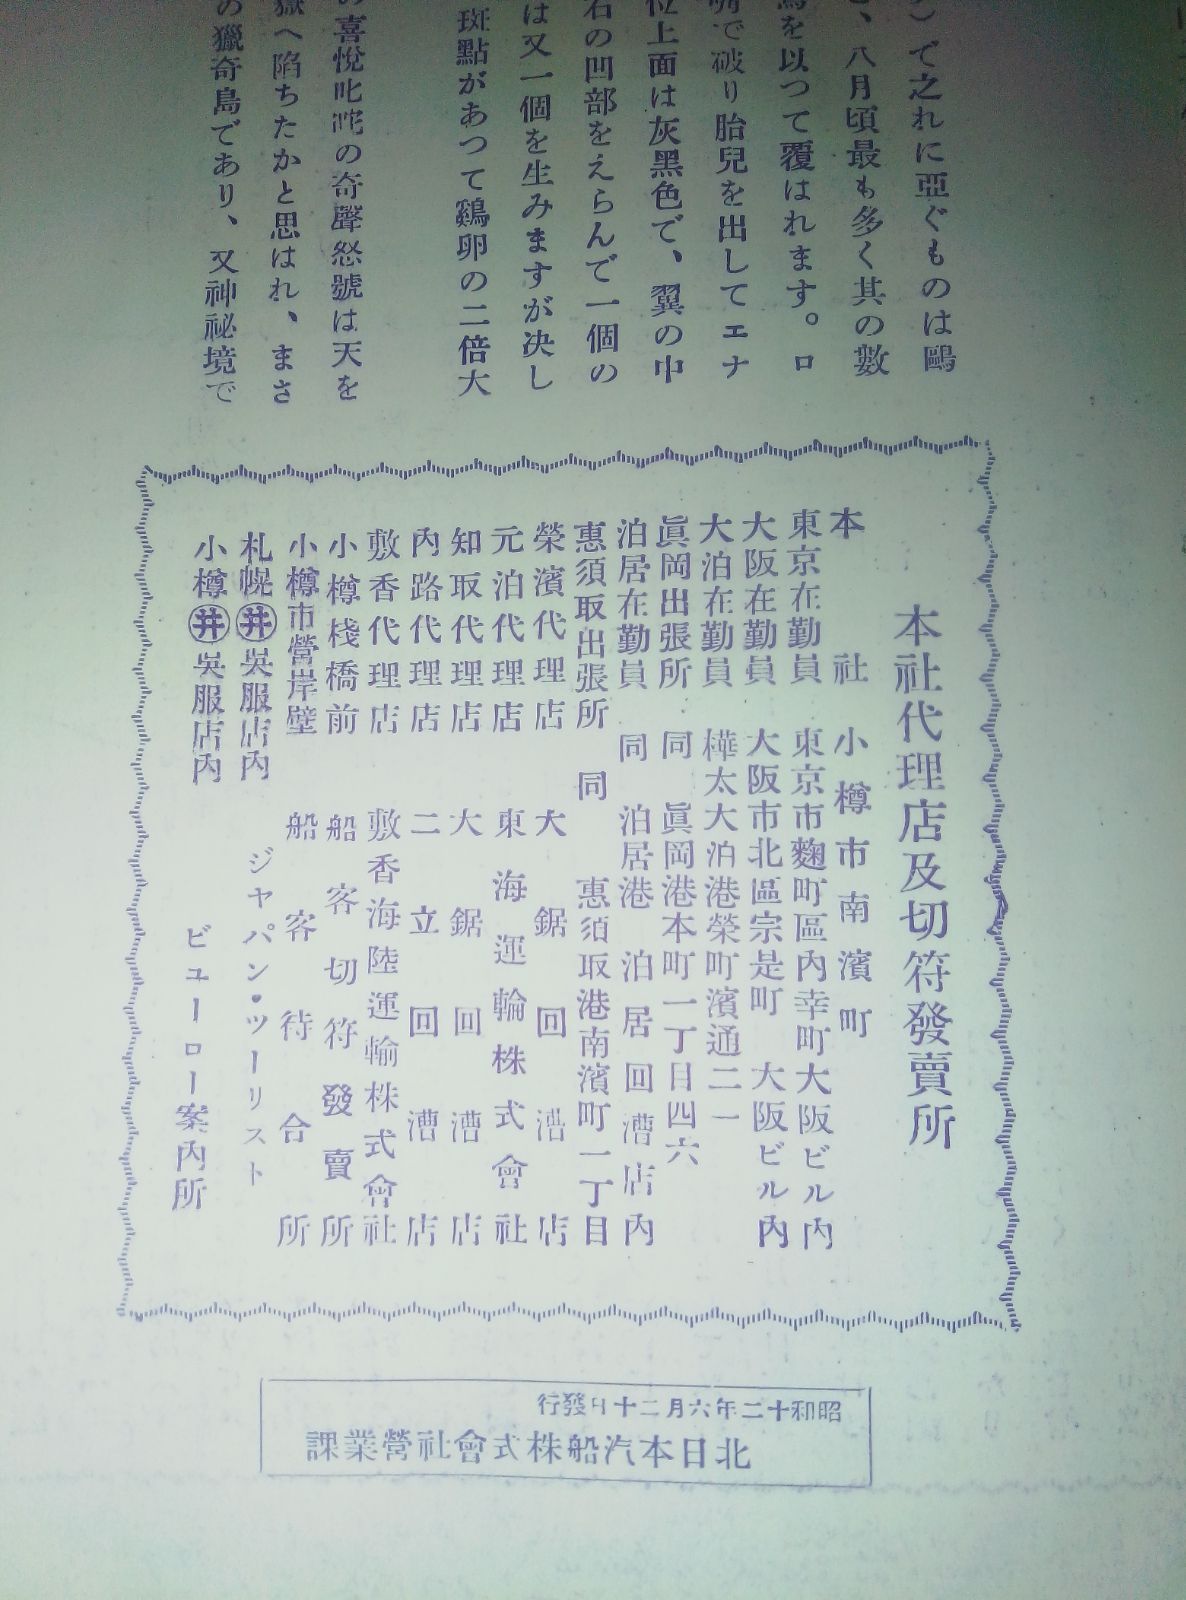 で之れに亞ぐものは鷗
、八月頃最も多く其の數
を以つて覆はれます。ロ
で破り胎兒を出してエナ
位上面は灰黑色で、翼の中
石の凹部をえらんで一個の
は又一個を生みますが決し
斑點があつて鷄卵の二倍大
の喜悅叱咤の奇聲怒號は天を
獄へ陷ちたかと思はれ、まさ
の獵奇島であり、又神祕境で
本社代理店及切符發賣所
本社 小樽市南濱町
東京在勤員 東京市麴町區內幸町大阪ビル內
大阪在勤員 大阪市北區宗是町 大阪ビル內
大泊在勤員 樺太大泊港榮町濱通二一
眞岡出張所 同 眞岡港本町一丁目四六
泊居在勤員 同 泊居港 泊居回漕店內
惠須取出張所 同 惠須取港南濱町一丁目
榮濱代理店 大鋸回漕店
元泊代理店 東海運輪株式會社
知取代理店 大鋸回漕店
內路代理店 二立回漕店
敷香代理店 敷香海陸運輸株式會社
小樽棧橋前 船客切符發賣所
小樽市營岸壁 船客待合所
札幌㊀井吳服店內 ジヤパン・ツーリスト
小樽井吳服店內 ビユーロー案內所
昭和十二年六月二十日發行
北日本汽船株式會社營業課